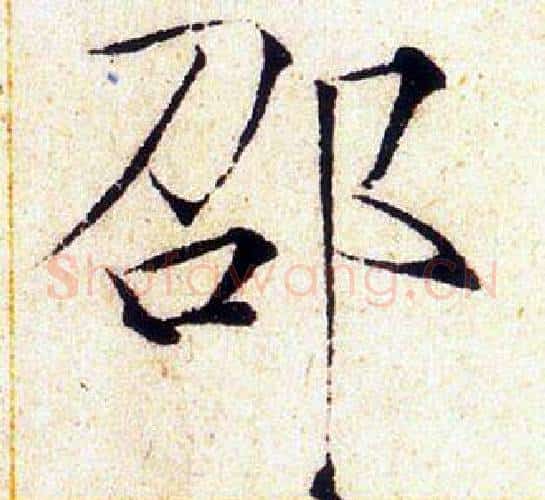 邵
Shufawang.CN